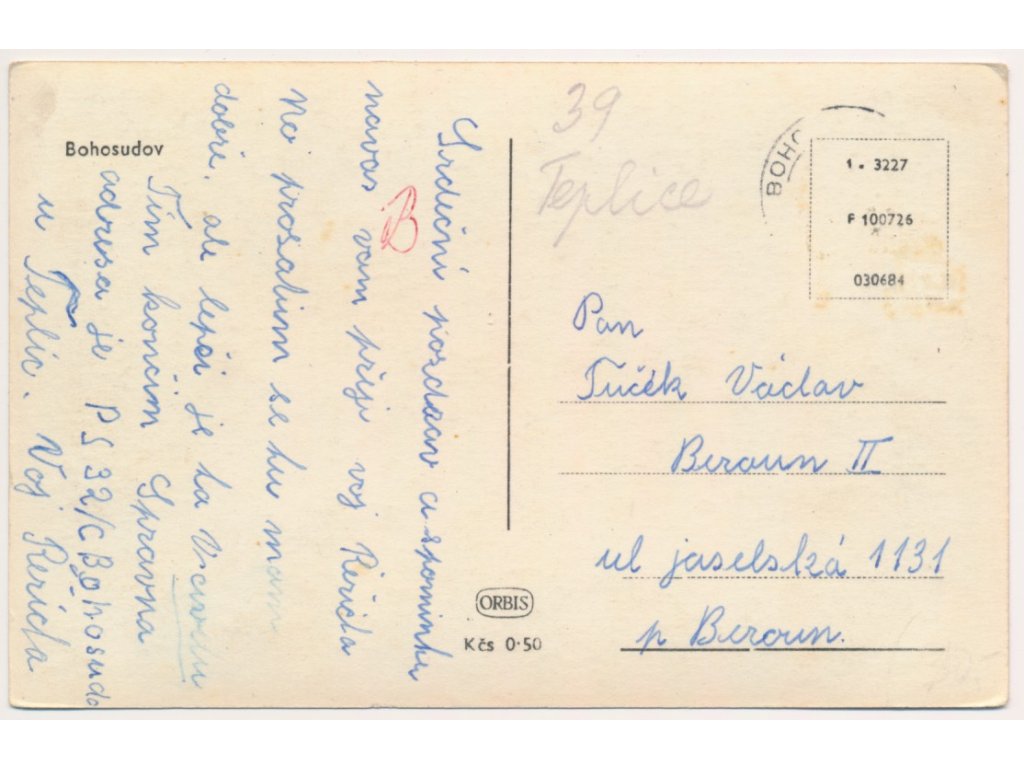 Bohosudov
Srdeční pozdrav a spominku
navas vam přiji voj Řeřicta
No prosatim se tu mam
dobře, ale lepči je to V civilu
Tim končim Spravna
adresa je PS 32/C Bohosudo
u Teplic. Voj Řeřicta
B
39
Teplice
BOHO
1. 3227
F 100726
030684
Pan
Tučěk Václav
Beroun II
ul jaselská 1131
p Beroun.
ORBIS
Kčs 0·50